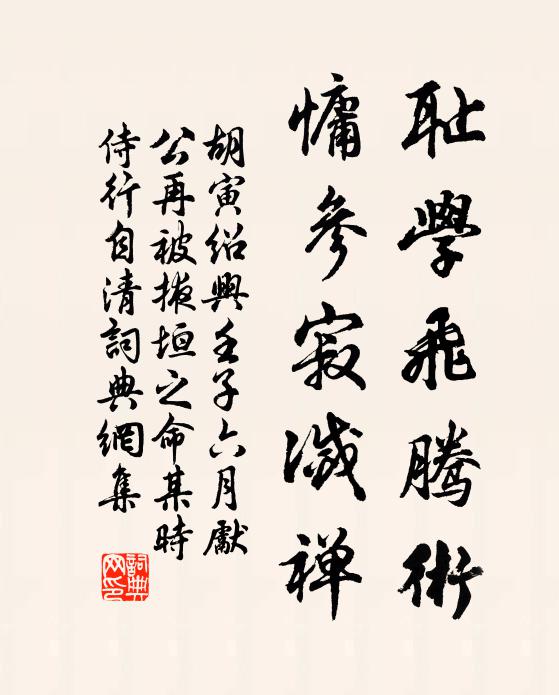 耻學飛騰術
慵參寂滅禅
胡寅紹興壬子六月獻
公再被掖垣之命某時
侍行自清詞典網集
詞典网印